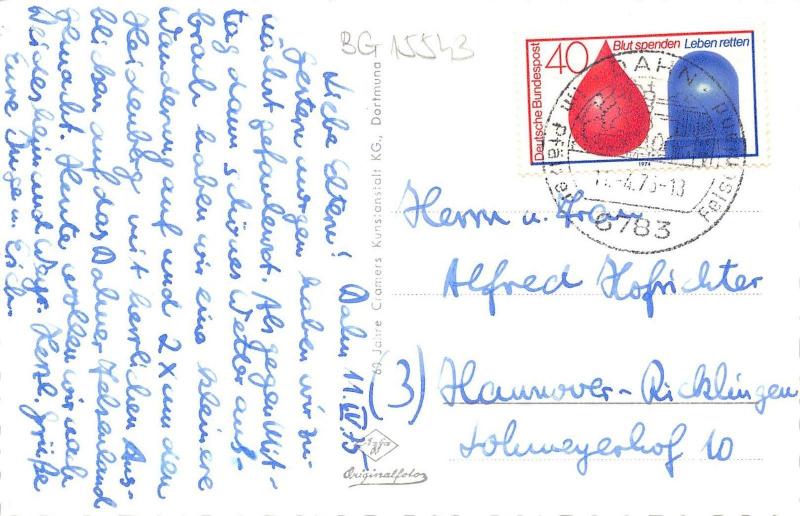 BG 15543
Deutsche Bundespost
40
Blut spenden Leben retten
1974
DAHN
11.-4.75-18
6783
Liebe Eltern! Dahn 11.IV.75
Gestern morgen haben wir zu-
nächst gefaulenzt. Als gegen Mit-
tag dann schönes Wetter auf-
brach haben wir eine kleinere
Wanderung auf und 2x um den
Heidenberg mit herrlichen Aus-
blicken auf das Dahner Felsenland
gemacht. Heute wollen wir nach
und Wegs. Herzl. Grüße
Eure Inge u. Erich.
60 Jahre Cramers Kunstanstalt KG., Dortmund
Agfa
Originalfoto
Herrn u. Frau
Alfred Hofrichter
(3) Hannover-Ricklingen
Lohmeyerhof 10